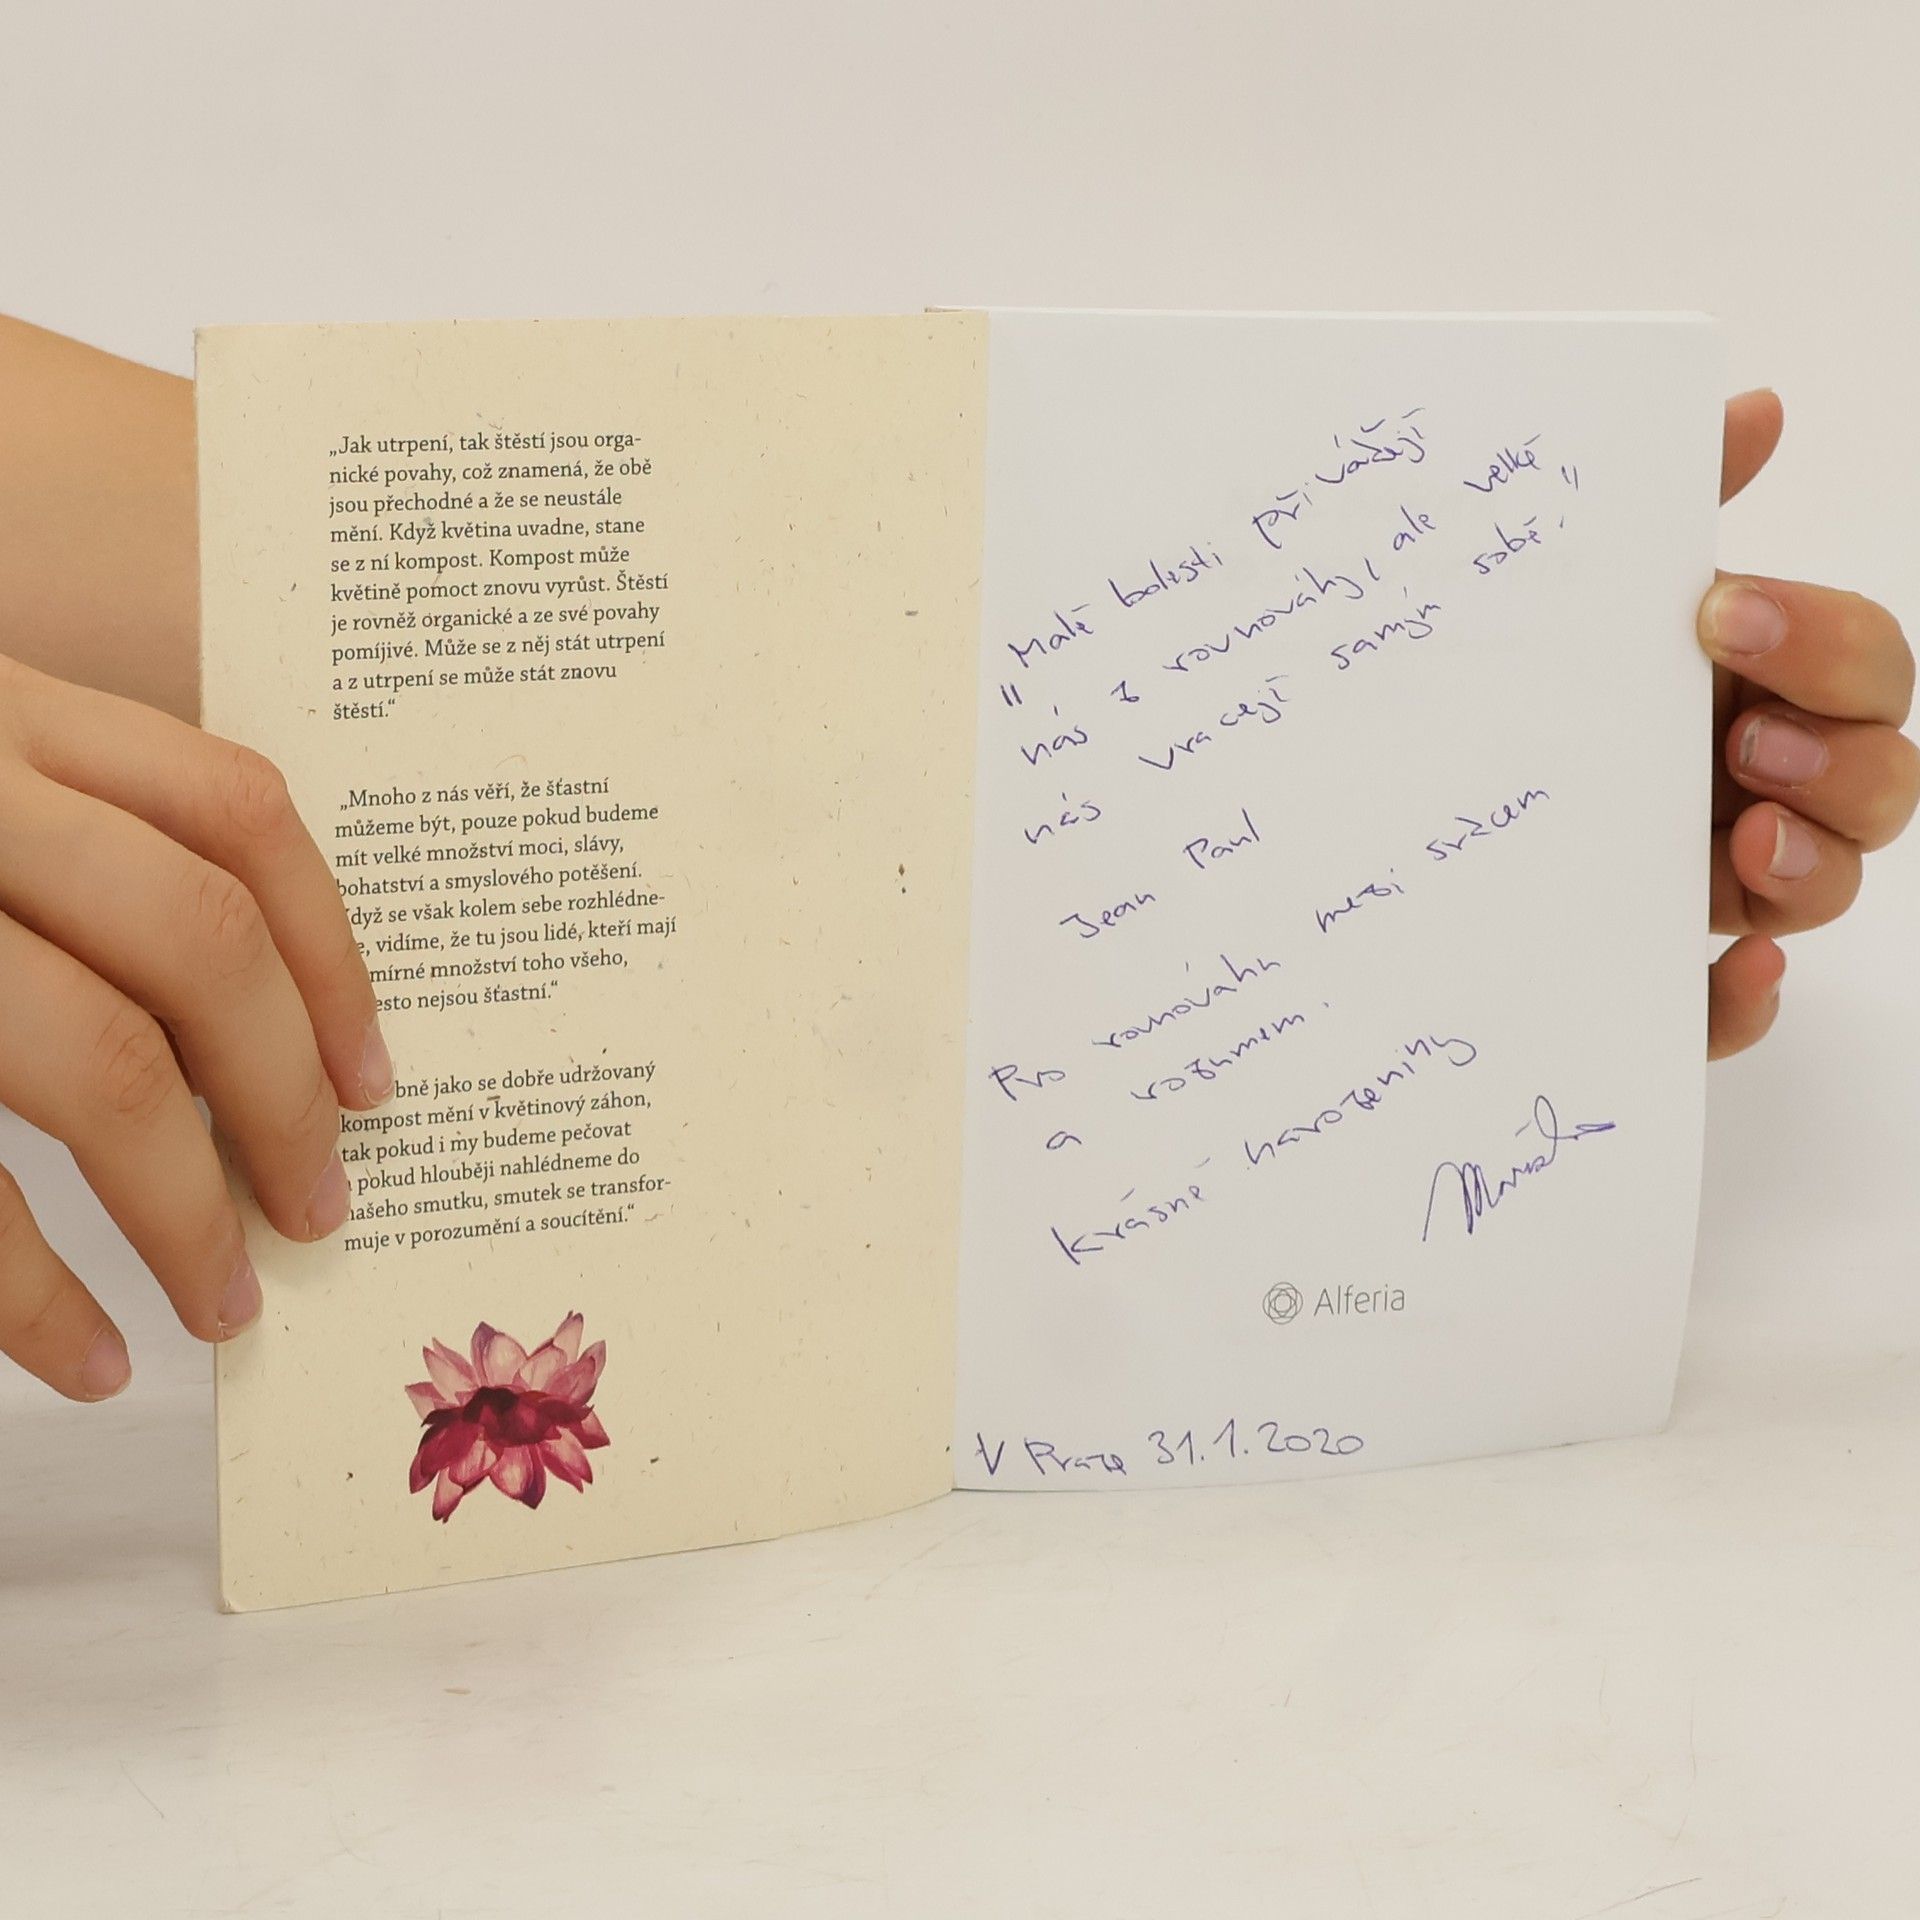 „Jak utrpení, tak štěstí jsou orga-
nické povahy, což znamená, že obě
jsou přechodné a že se neustále
mění. Když květina uvadne, stane
se z ní kompost. Kompost může
květině pomoct znovu vyrůst. Štěstí
je rovněž organické a ze své povahy
pomíjivé. Může se z něj stát utrpení
a z utrpení se může stát znovu
štěstí.“
„Mnoho z nás věří, že šťastní
můžeme být, pouze pokud budeme
mít velké množství moci, slávy,
bohatství a smyslového potěšení.
dyž se však kolem sebe rozhlédne-
e, vidíme, že tu jsou lidé, kteří mají
mírné množství toho všeho,
esto nejsou šťastní.“
bně jako se dobře udržovaný
kompost mění v květinový záhon,
tak pokud i my budeme pečovat
pokud hlouběji nahlédneme do
našeho smutku, smutek se transfor-
muje v porozumění a soucítění.“
"Malé bolesti přivádějí
nás z rovnováhy, ale velké
nás vracejí samým sobě."
Jean Paul
Pro rovnováhu mezi srdcem
a rozumem.
Krásné narozeniny
Alferia
V Praze 31.1.2020